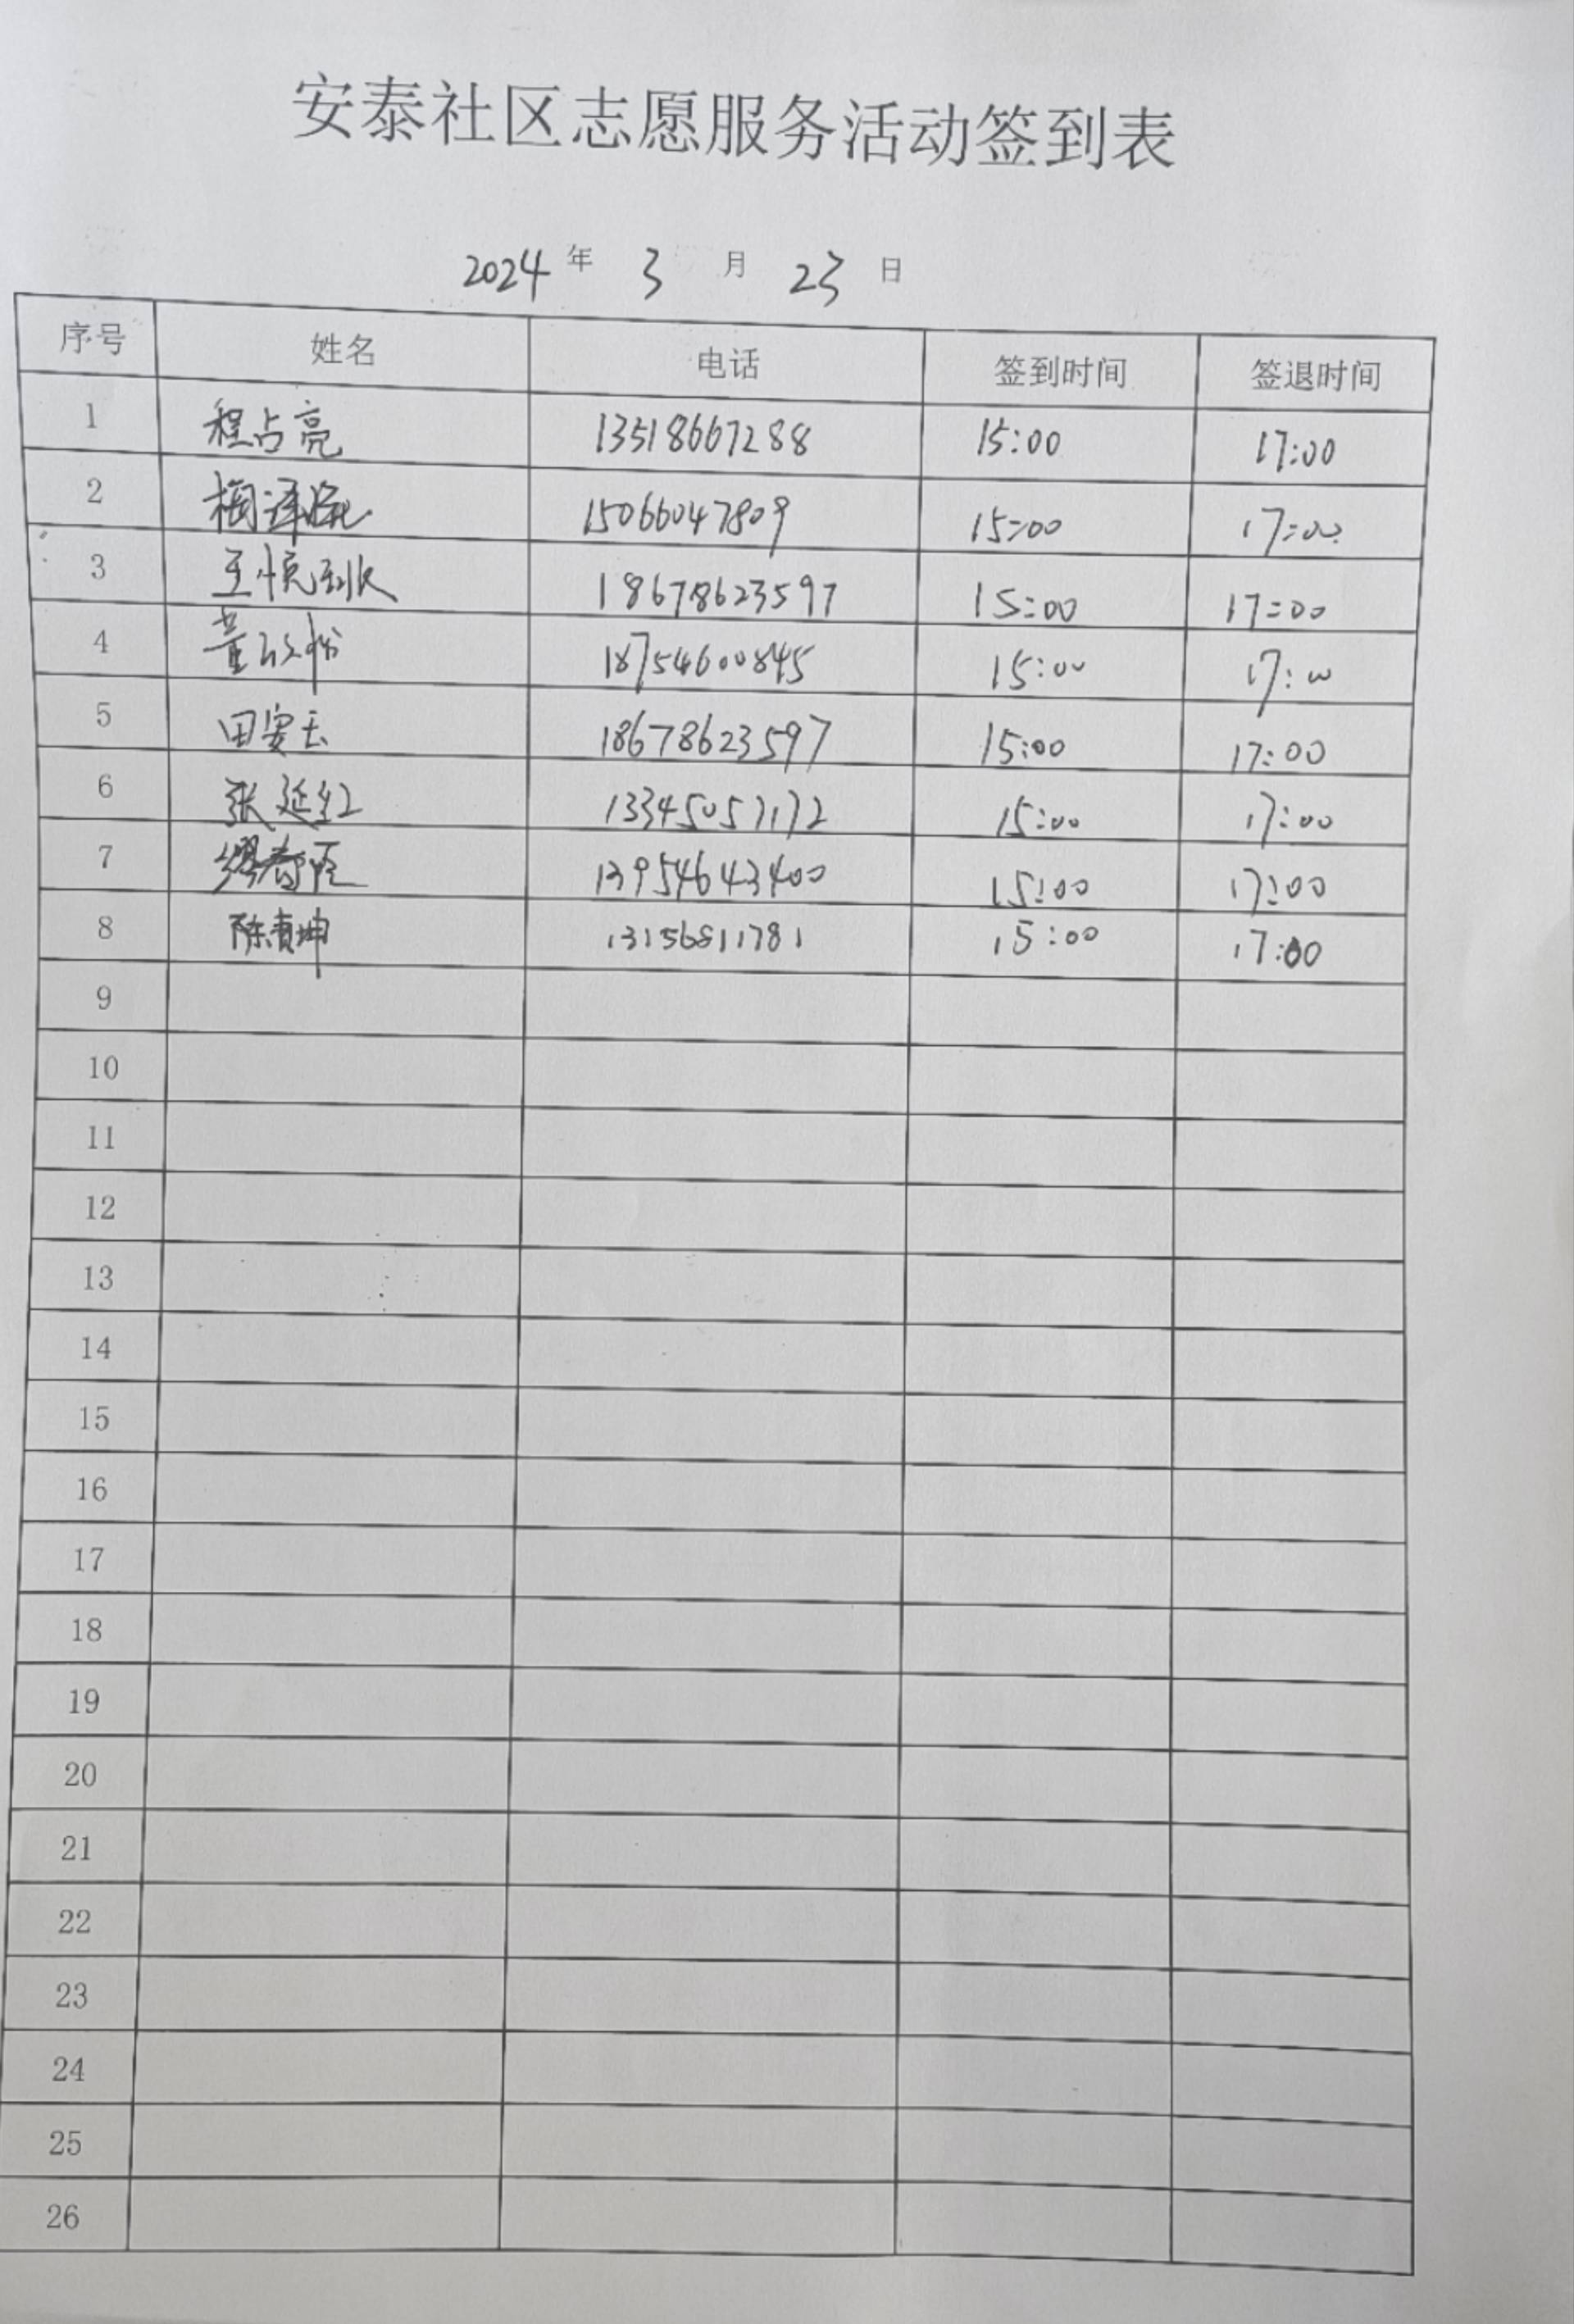 安泰社区志愿服务活动签到表
2024 年 3 月 23 日
序号 姓名 电话 签到时间 签退时间
1 程占亮 13518667288 15:00 17:00
2 15066047809 15:00 17:00
3 18678623597 15:00 17:00
4 18754600845 15:00 17:00
5 田安玉 18678623597 15:00 17:00
6 张延红 13345057172 15:00 17:00
7 13954643400 15:00 17:00
8 陈贵坤 13156811781 15:00 17:00
9
10
11
12
13
14
15
16
17
18
19
20
21
22
23
24
25
26